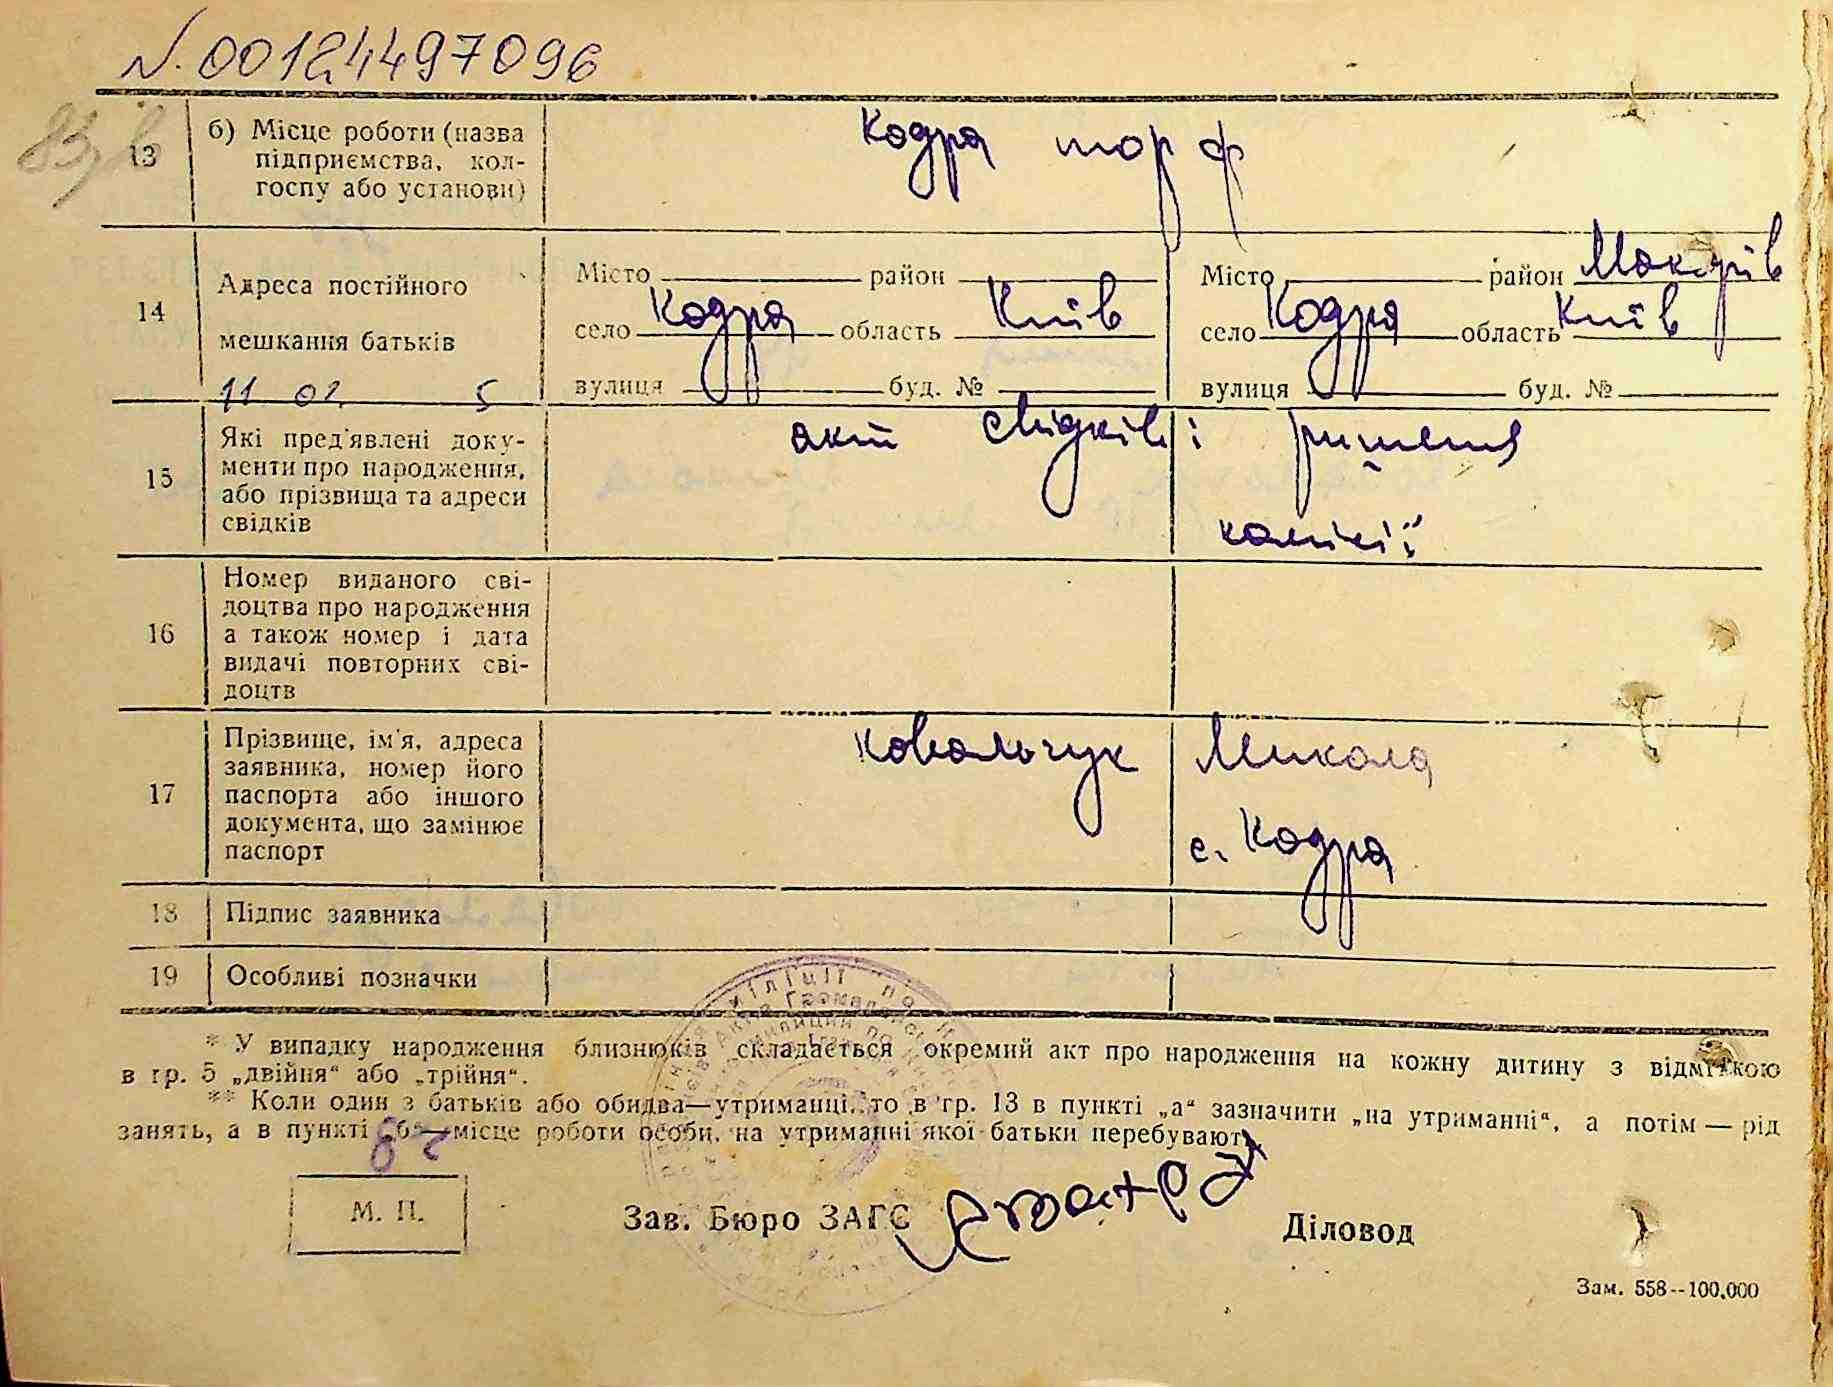 N. 00124497096
13
б) Місце роботи (назва
підприємства, кол-
госпу або установи)
Кодра торф
14
Адреса постійного
мешкання батьків
11 02 5
Місто район
село Кодра область Київ
вулиця буд. №
Місто район Макарів
село Кодра область Київ
вулиця буд. №
15
Які пред'явлені доку-
менти про народження,
або прізвища та адреси
свідків
акт свідків і ришення
комісії
16
Номер виданого сві-
доцтва про народження
а також номер і дата
видачі повторних сві-
доцтв
17
Прізвище, ім'я, адреса
заявника, номер його
паспорта або іншого
документа, що замінює
паспорт
Ковальчук Микола
с. Кодра
18
Підпис заявника
19
Особливі позначки
* У випадку народження близнюків складається окремий акт про народження на кожну дитину з відміткою
в гр. 5 „двійня“ або „трійня“.
** Коли один з батьків або обидва—утриманці, то в гр. 13 в пункті „а“ зазначити „на утриманні“, а потім — рід
занять, а в пункті „б“—місце роботи особи, на утриманні якої батьки перебувають.
М. П.
Зав. Бюро ЗАГС
Діловод
Зам. 558--100.000